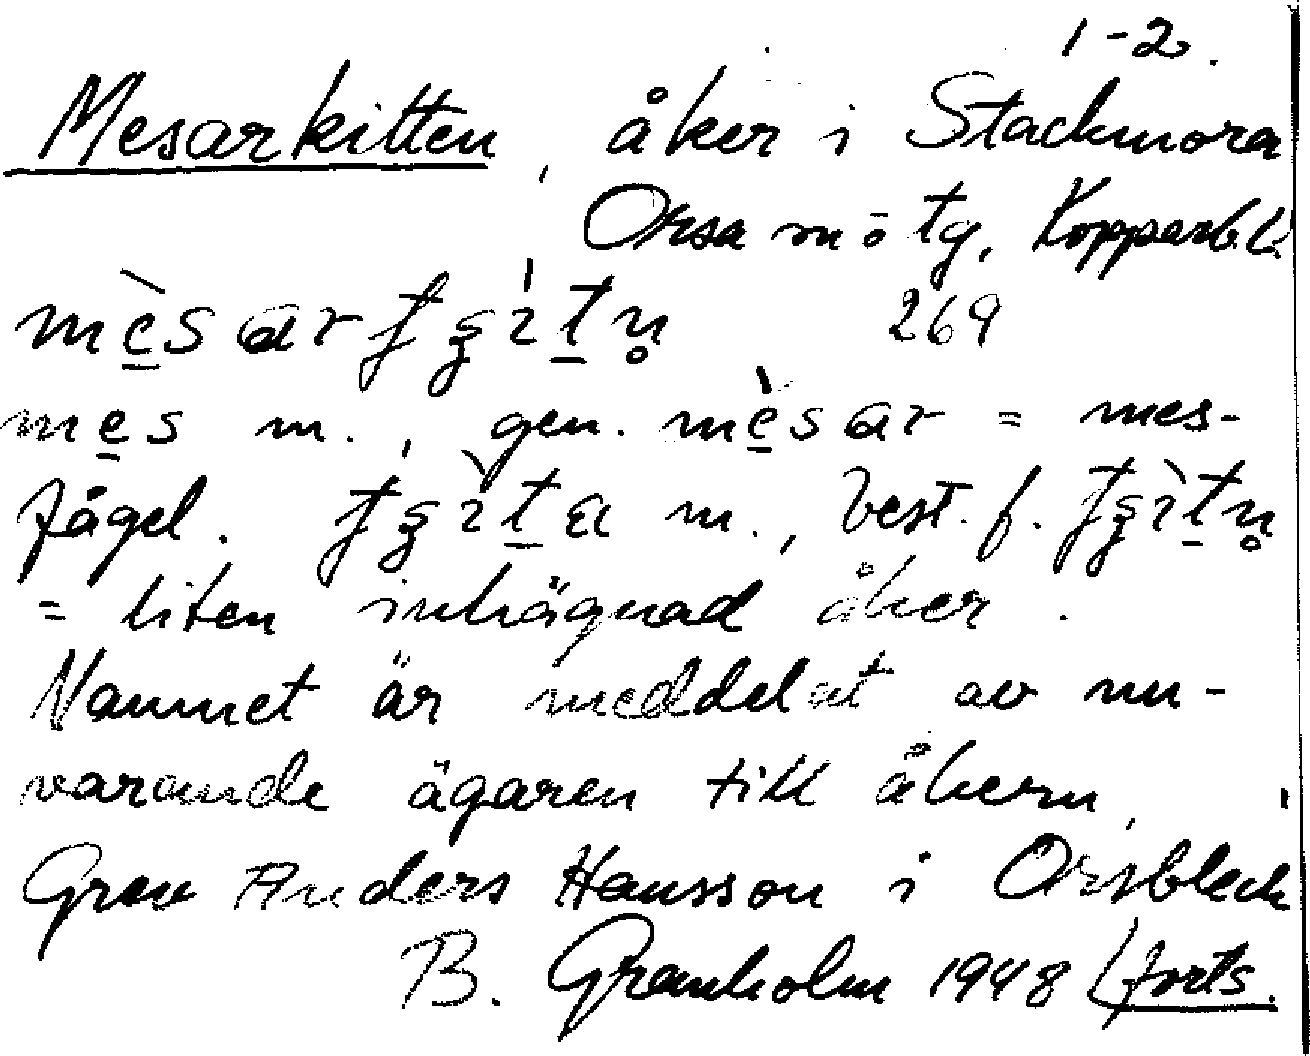 1-2.
Mesarkitten, åker i Stackmora
Orsa m ö tg, Kopparb l.
mè̱sarʄʂìṯn̥ 269
me̱s m., gen. mè̱sar = mes-
fågel. ʄʂìṯa m., best. f. ʄʂìṯn̥
= liten inhägnad åker.
Namnet är meddelat av nu-
varande ägaren till åkern,
Grav Anders Hansson i Orsbleck
B. Granholm 1948 (forts.